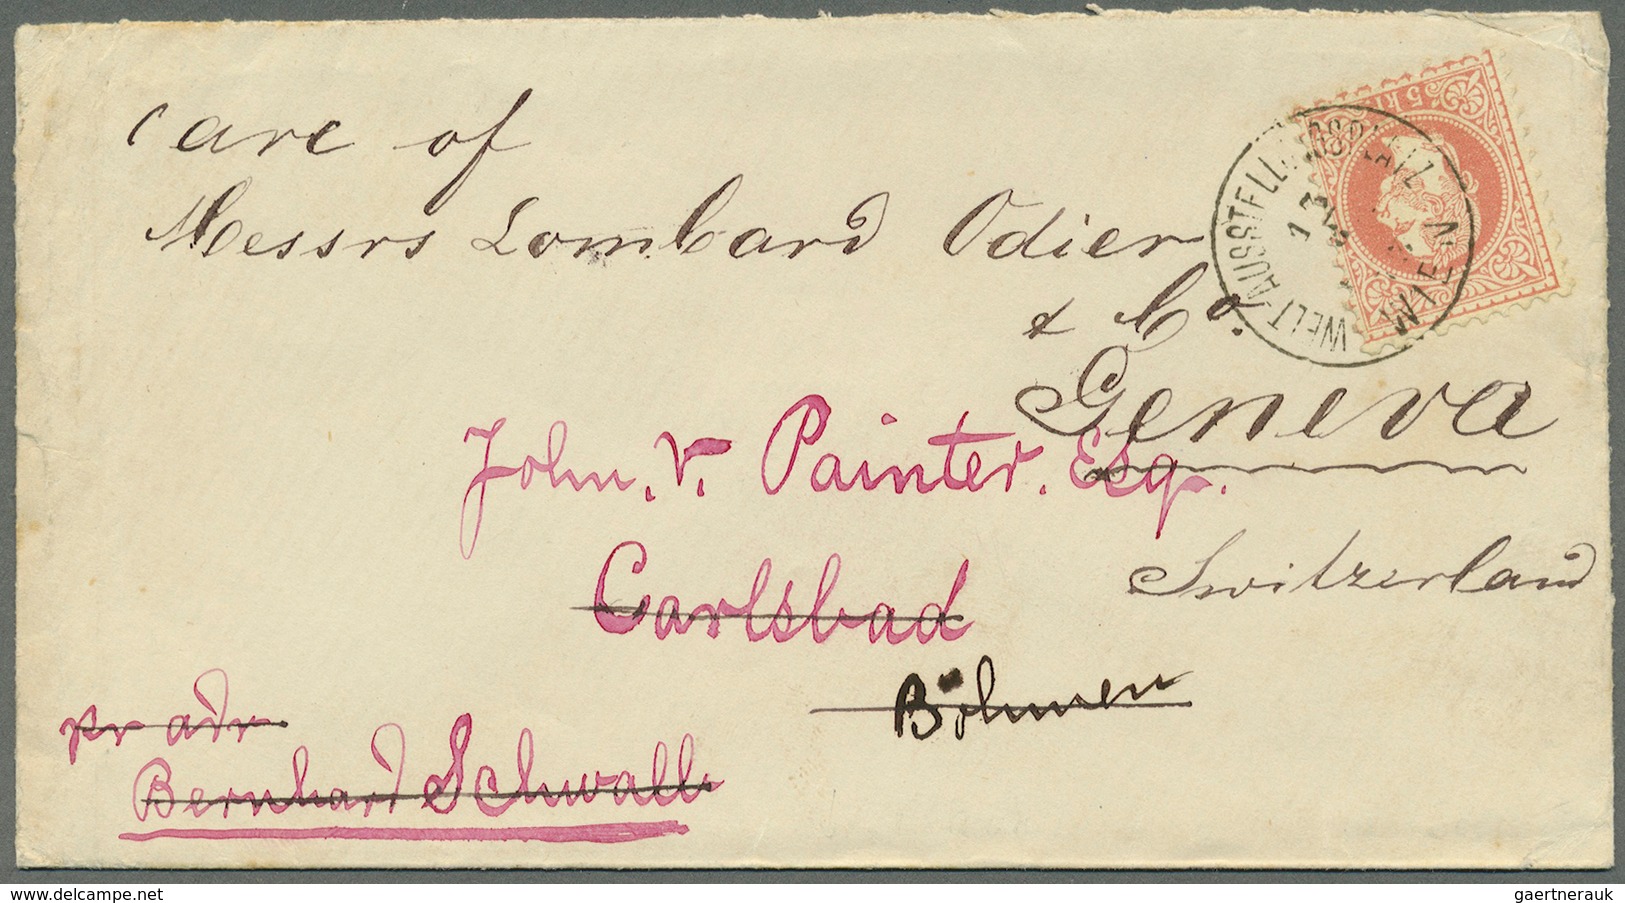 care of
Messrs Lombard Odier
& Co.
Geneva
Switzerland
John. V. Painter. Esq.
Carlsbad
Böhmen
pr adr
Bernhard Schwalb
5 kr
WELT AUSSTELLUNGSPLATZ
WIEN
delcampe.net
gaertnerauk